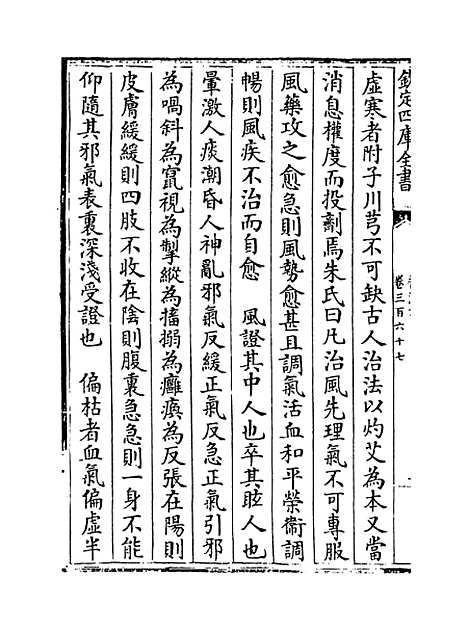 欽定四庫全書
卷三百六十七
虛寒者附子川芎不可缺古人治法以灼艾為本又當
消息權度而投劑焉朱氏曰凡治風先理氣不可專服
風藥攻之愈急則風勢愈甚且調氣活血和平榮衞調
暢則風疾不治而自愈　風證其中人也卒其眩人也
暈激人痰潮昏人神亂邪氣反緩正氣反急正氣引邪
為喎斜為竄視為掣縱為搐搦為癱瘓為反張在陽則
皮膚緩緩則四肢不收在陰則腹裏急急則一身不能
仰隨其邪氣表裏深淺受證也　偏枯者血氣偏虛半